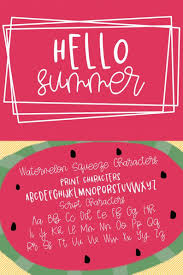 HELLO
summer
Watermelon Squeeze Characters
PRINT CHARACTERS
ABCDEFGHIJKLMNOPQRSTUVWXYZ
Script Characters
Aa Bb Cc Dd Ee Ff Gg Hh
Ii Jj Kk Ll Mm Nn Oo Pp Qq
Rr Ss Tt Uu Vv Ww Xx Yy Zz